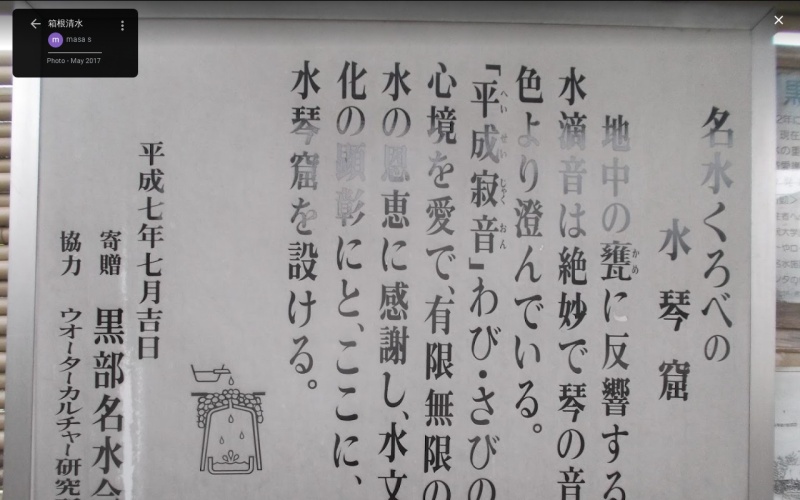 箱根清水
masa s
Photo - May 2017
名水くろべの
水琴窟
地中の甕に反響する
かめ
水滴音は絶妙で琴の音
色より澄んでいる。
「平成寂音」わび・さびの
へい せい じゃく おん
心境を愛で、有限無限の
水の恩恵に感謝し、水文
化の顕彰にと、ここに、
水琴窟を設ける。
平成七年七月吉日
寄贈 黒部名水会
協力 ウオーターカルチャー研究